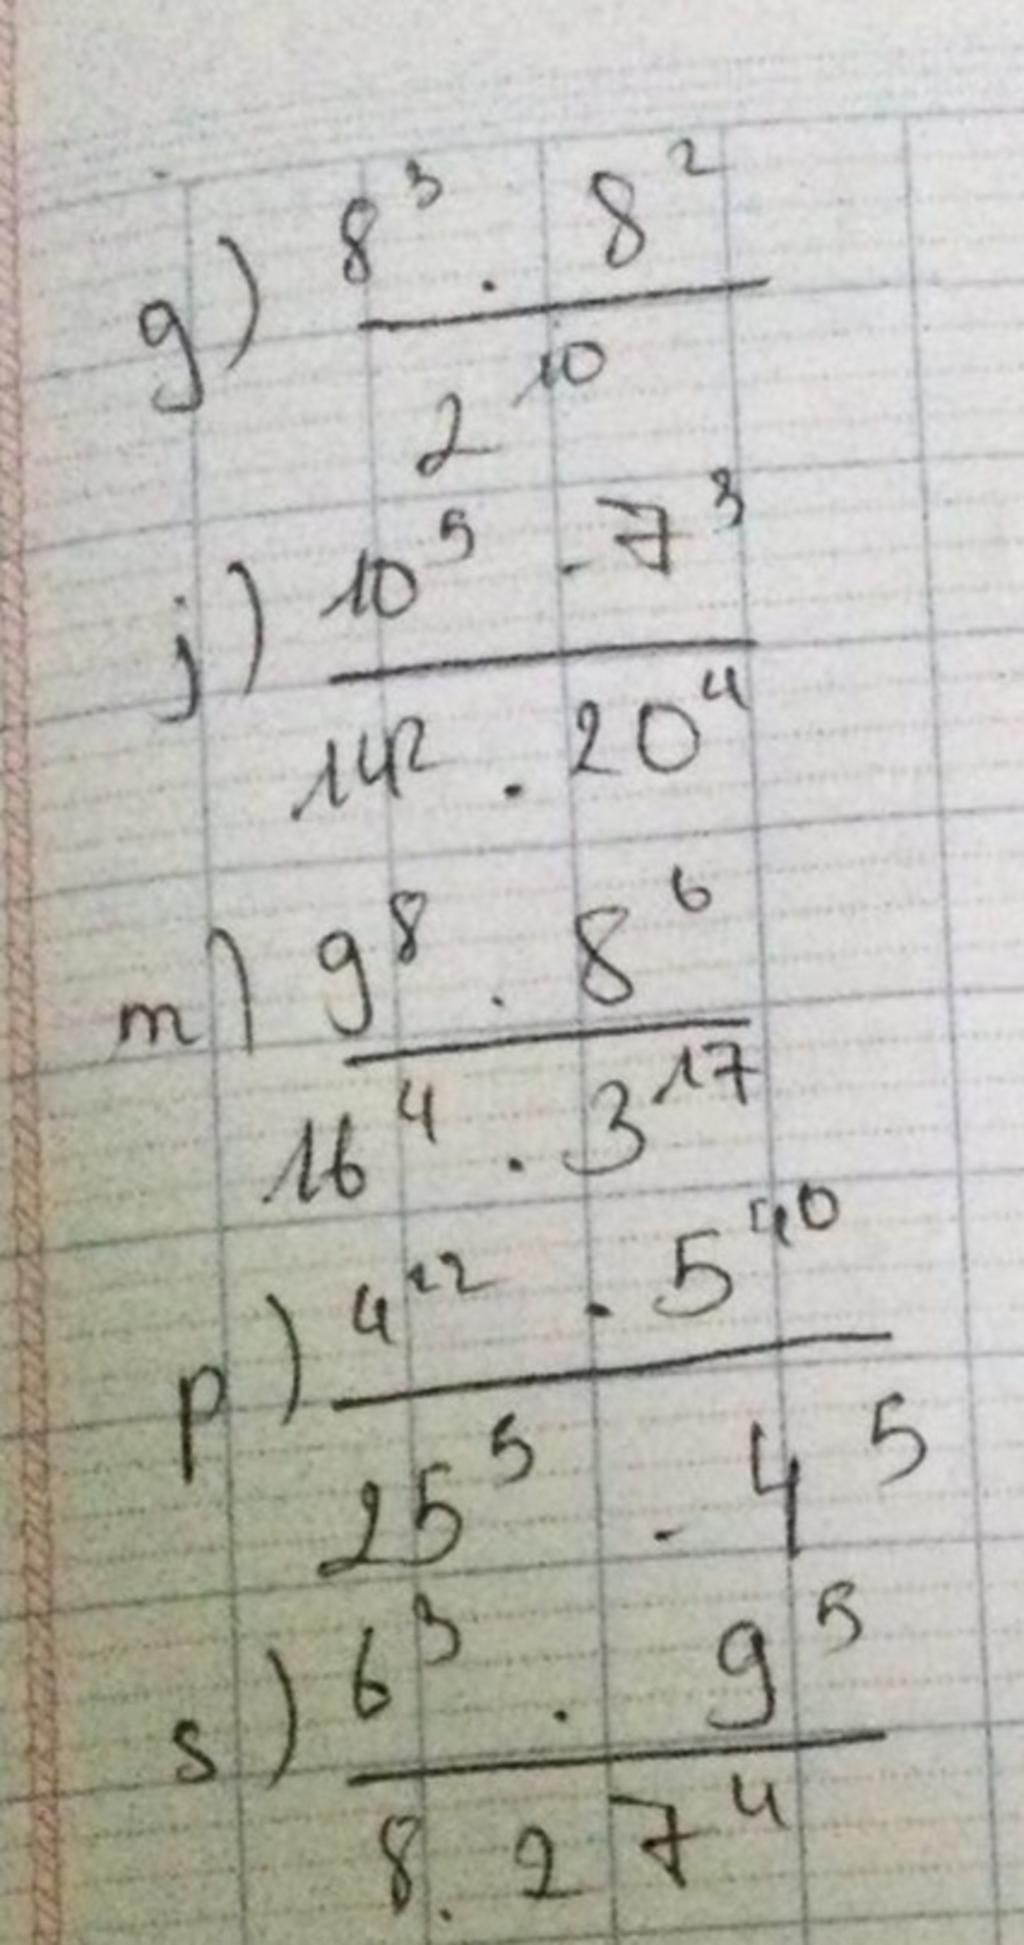 g) 8³ . 8²
2¹⁰
j) 10⁵ . 7³
14² . 20⁴
m) 9⁸ . 8⁶
16⁴ . 3¹⁷
p) 4¹² . 5⁴⁰
25⁵ . 4⁵
s) 6³ . 9⁵
8 . 27⁴